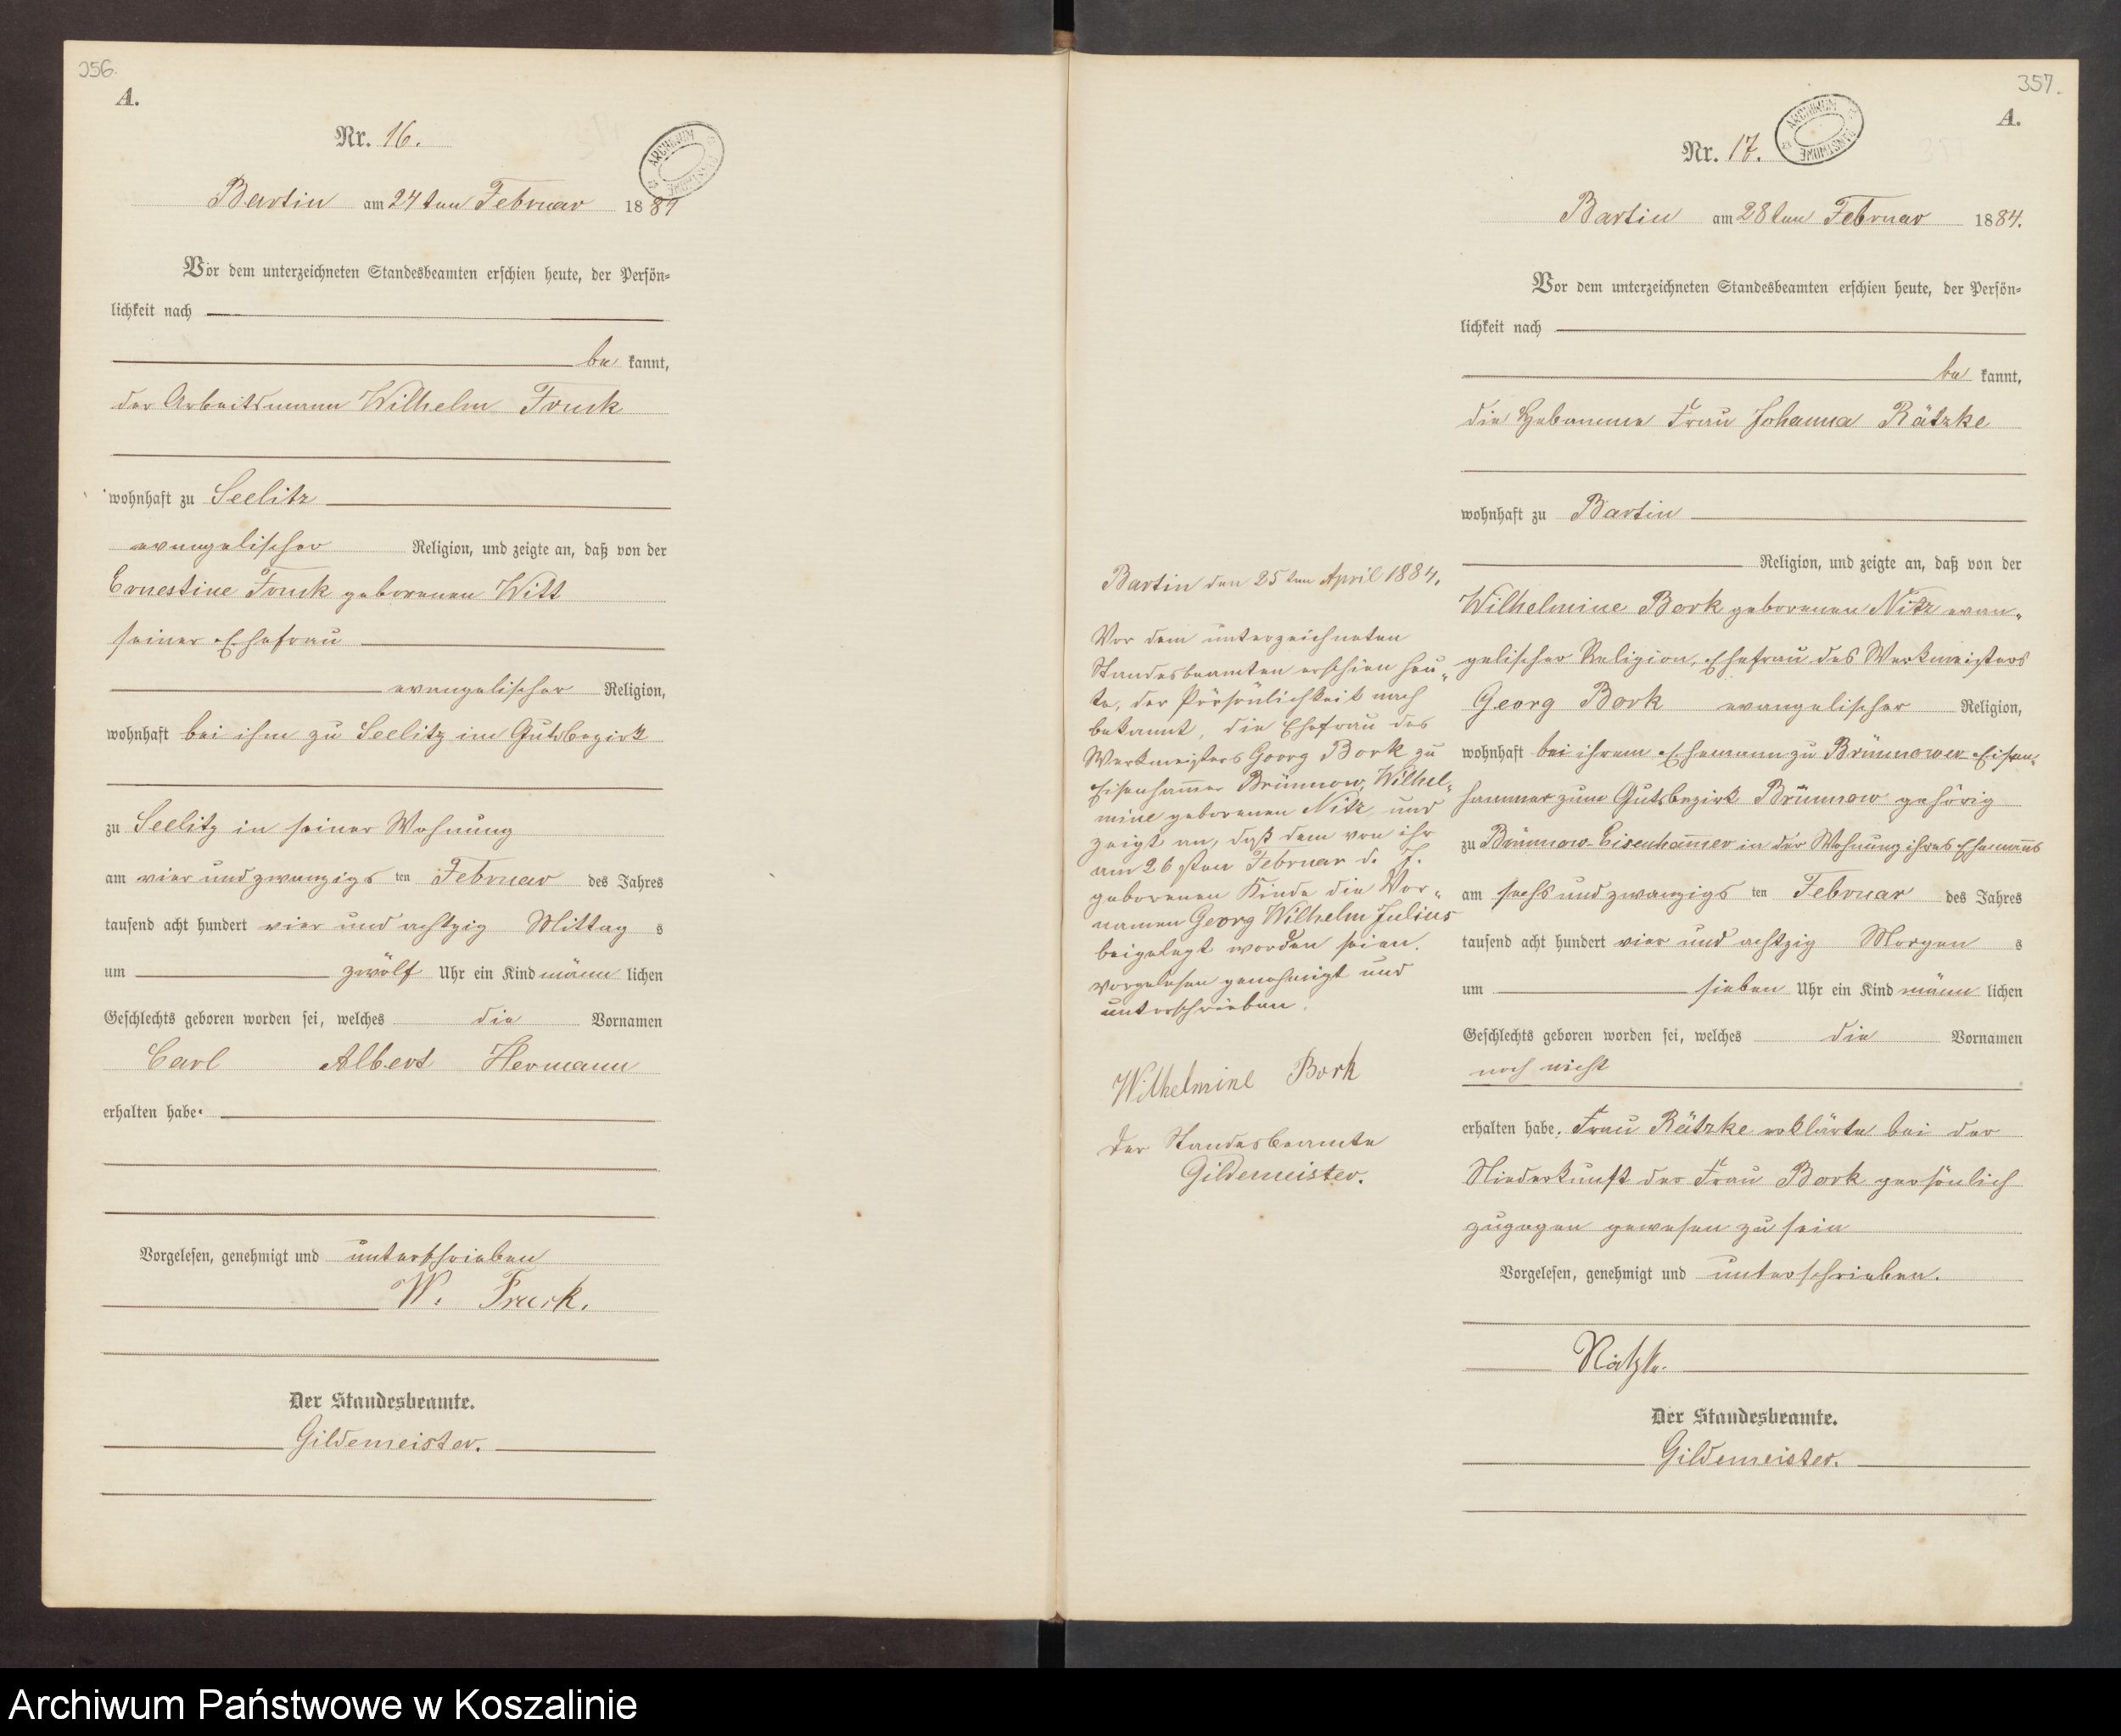 356.
A.
Nr. 16.
ARCHIWUM PAŃSTWOWE
Bartin am 24ten Februar 1884
Vor dem unterzeichneten Standesbeamten erschien heute, der Persön-
lichkeit nach
be kannt,
der Arbeitsmann Wilhelm
wohnhaft zu Seelitz
evangelischer Religion, und zeigte an, daß von der
Ernestine geborenen Witt
seiner Ehefrau
evangelischer Religion,
wohnhaft bei ihm zu Seelitz im Gutsbezirk
zu Seelitz in seiner Wohnung
am vier und zwanzigs ten Februar des Jahres
tausend acht hundert vier und achtzig Mittag s
um zwölf Uhr ein Kind männ lichen
Geschlechts geboren worden sei, welches die Vornamen
Carl Albert Hermann
erhalten habe.
Vorgelesen, genehmigt und unterschrieben
W.
Der Standesbeamte.
Gildemeister.
357.
A.
Nr. 17.
ARCHIWUM PAŃSTWOWE
Bartin am 28ten Februar 1884.
Vor dem unterzeichneten Standesbeamten erschien heute, der Persön-
lichkeit nach
be kannt,
die Hebamme Frau Johanna Rätzke
wohnhaft zu Bartin
Religion, und zeigte an, daß von der
Wilhelmine Bork geborenen Nitz evan-
gelischer Religion, Ehefrau des Werkmeisters
Georg Bork evangelischer Religion,
wohnhaft bei ihrem Ehemann zu Brünnower Eisen-
hammer zum Gutsbezirk Brünnow gehörig
zu Brünnow-Eisenham̅er in der Wohnung ihres Eheman̅s
am sechs und zwanzigs ten Februar des Jahres
tausend acht hundert vier und achtzig Morgen s
um sieben Uhr ein Kind männ lichen
Geschlechts geboren worden sei, welches die Vornamen
noch nicht
erhalten habe. Frau Rätzke erklärte bei der
Niederkunft der Frau Bork persönlich
zugegen gewesen zu sein
Vorgelesen, genehmigt und unterschrieben.
Rätzke.
Der Standesbeamte.
Gildemeister.
Bartin den 25ten April 1884.
Vor dem unterzeichneten
Standesbeamten erschien heu-
te, der Persönlichkeit nach
bekannt, die Ehefrau des
Werkmeisters Georg Bork zu
Eisenham̅er Brünnow, Wilhel-
mine geborenen Nitz, und
zeigt an, daß dem von ihr
am 26sten Februar d. J.
geborenen Kinde die Vor-
namen Georg Wilhelm Julius
beigelegt worden seien.
vorgelesen genehmigt und
unterschrieben.
Wilhelmine Bork
Der Standesbeamte
Gildemeister.
Archiwum Państwowe w Koszalinie